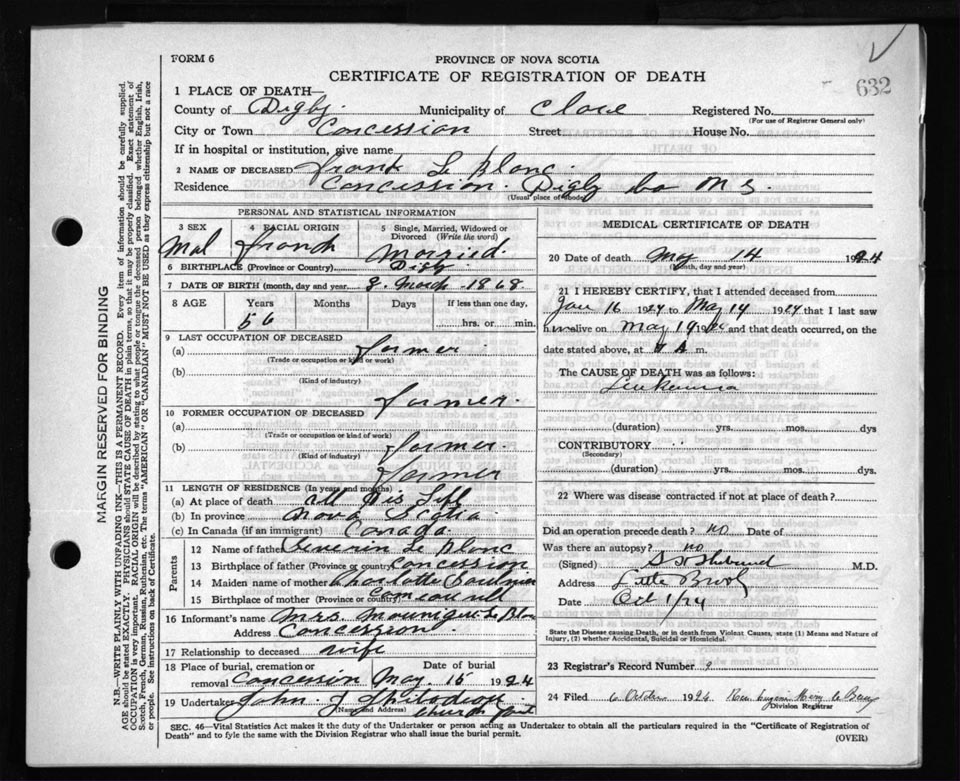 632
FORM 6
PROVINCE OF NOVA SCOTIA
CERTIFICATE OF REGISTRATION OF DEATH
1 PLACE OF DEATH—
County of Digby. Municipality of Clare Registered No.
(For use of Registrar General only)
City or Town Concession Street House No.
If in hospital or institution, give name
2 NAME OF DECEASED frank Le Blanc
Residence Concession. Digby co N S.
(Usual place of abode)
PERSONAL AND STATISTICAL INFORMATION
3 SEX 4 RACIAL ORIGIN 5 Single, Married, Widowed or Divorced (Write the word)
Mal french Married.
6 BIRTHPLACE (Province or Country) Digby
7 DATE OF BIRTH (month, day and year) 8. March - 1868.
8 AGE Years Months Days If less than one day,
56 hrs. or min.
9 LAST OCCUPATION OF DECEASED
(a) farmer.
(Trade or occupation or kind or work)
(b)
(Kind of industry)
10 FORMER OCCUPATION OF DECEASED farmer.
(a)
(Trade or occupation or kind of work)
(b) farmer.
(Kind of industry)
farmer
11 LENGTH OF RESIDENCE (In years and months)
(a) At place of death all His Life
(b) In province Nova Scotia
(c) In Canada (if an immigrant) Canada.
Parents
12 Name of father Severin Le Blanc
13 Birthplace of father (Province or country) Concession
14 Maiden name of mother Charlotte
15 Birthplace of mother (Province or country)
16 Informant's name Mrs. Le Blan
Address Concession.
17 Relationship to deceased wife
18 Place of burial, cremation or removal Date of burial
Concession May. 15 1924
19 Undertaker John J Thibodeau
(Name and Address) Church Point
MEDICAL CERTIFICATE OF DEATH
20 Date of death May 14 1924
(Month, day and year)
21 I HEREBY CERTIFY, that I attended deceased from
Jan 16 1924 to May 14 1924 that I last saw
him alive on May 14 1924 and that death occurred, on the
date stated above, at A m.
The CAUSE OF DEATH was as follows:
Leukemia
(duration) yrs. mos. dys
CONTRIBUTORY
(Secondary)
(duration) yrs. mos. dys
22 Where was disease contracted if not at place of death?
Did an operation precede death? no Date of
Was there an autopsy? no
(Signed) M.D.
Address Little Brook
Date Oct 1/24
State the Disease causing Death, or in death from Violent Causes, state (1) Means and Nature of
Injury, (2) whether Accidental, Suicidal or Homicidal.
23 Registrar's Record Number 9
24 Filed 6 October 1924
Division Registrar
SEC. 46—Vital Statistics Act makes it the duty of the Undertaker or person acting as Undertaker to obtain all the particulars required in the "Certificate of Registration of
Death" and to fyle the same with the Division Registrar who shall issue the burial permit.
(OVER)
MARGIN RESERVED FOR BINDING
N.B.—WRITE PLAINLY WITH UNFADING INK—THIS IS A PERMANENT RECORD. Every item of information should be carefully supplied.
AGE should be stated EXACTLY. PHYSICIANS should STATE CAUSE OF DEATH in plain terms, so that it may be properly classified. Exact statement of
OCCUPATION is very important. RACIAL ORIGIN will be described by stating to what people or tongue the deceased person belonged whether English, Irish,
Scotch, French, German, Russian, Ruthenian, etc. The terms "AMERICAN" OR "CANADIAN" MUST NOT BE USED as they express citizenship but not a race
or people. See instructions on back of Certificate.